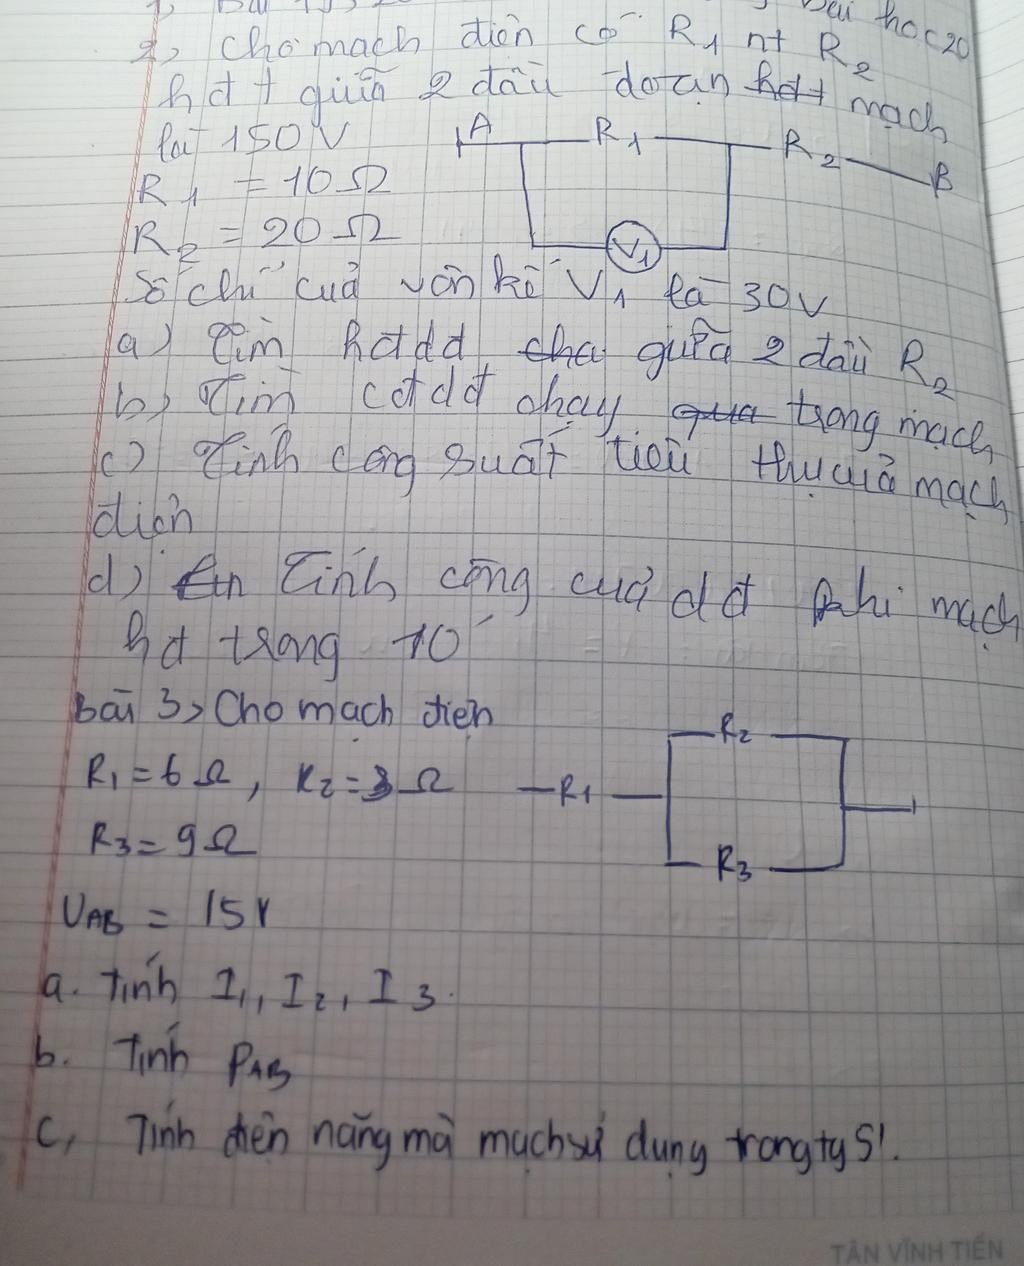 2, Cho mạch điện có R1 nt R2
hđt giữa 2 đầu đoạn hđt mạch
là 150V
A R1 R2 B
R1 = 10Ω
R2 = 20Ω
V1
Số chỉ của vôn kế V1 là 30V
a) Tìm hđdđ cha giữa 2 đầu R2
b) Tìm cđdđ chạy qua trong mạch
c) Tính công suất tiêu thụ của mạch
điện
d) Tính công của dđ khi mạch
hđ trong 10'
bài 3, Cho mạch điện
R2
R1 = 6Ω, R2 = 3Ω
R1
R3 = 9Ω
R3
UAB = 15V
a. Tính I1, I2, I3.
b. Tính PAB
c, Tính điện năng mà mạch sử dụng trong 5'.
TÂN VĨNH TIẾN